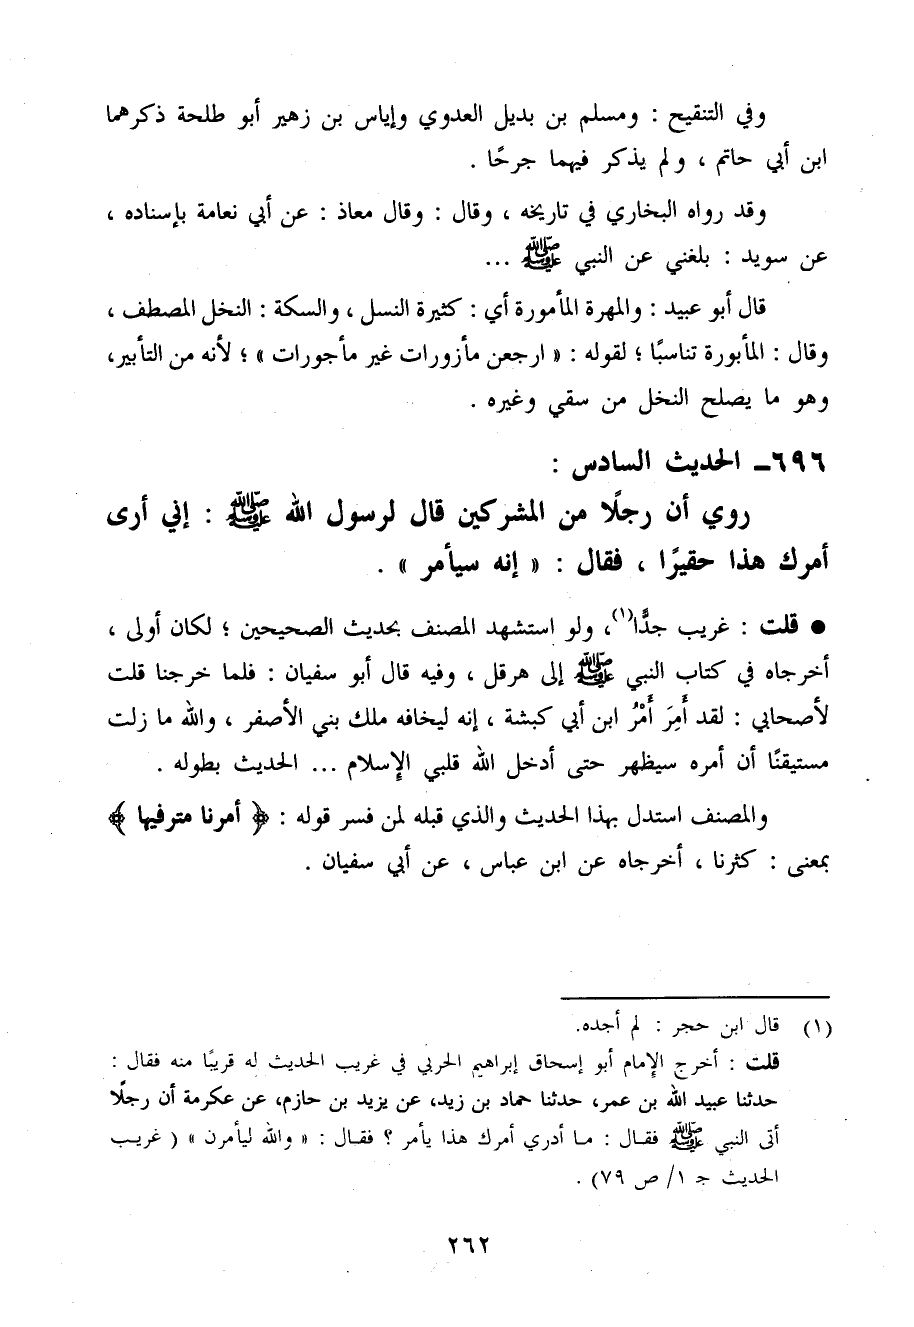 وفي التنقيح : ومسلم بن بديل العدوي وإياس بن زهير أبو طلحة ذكرهما
ابن أبي حاتم ، ولم يذكر فيهما جرحًا .
وقد رواه البخاري في تاريخه ، وقال : وقال معاذ : عن أبي نعامة بإسناده ،
عن سويد : بلغني عن النبي ﷺ ...
قال أبو عبيد : والمهرة المأمورة أي : كثيرة النسل ، والسكة : النخل المصطف ،
وقال : المأبورة تناسبًا ؛ لقوله : « ارجعن مأزورات غير مأجورات » ؛ لأنه من التأبير،
وهو ما يصلح النخل من سقي وغيره .
٦٩٦ـ الحديث السادس :
روي أن رجلًا من المشركين قال لرسول الله ﷺ : إني أرى
أمرك هذا حقيرًا ، فقال : « إنه سيأمر » .
● قلت : غريب جدًّا(١)، ولو استشهد المصنف بحديث الصحيحين ؛ لكان أولى ،
أخرجاه في كتاب النبي ﷺ إلى هرقل ، وفيه قال أبو سفيان : فلما خرجنا قلت
لأصحابي : لقد أَمِرَ أَمْرُ ابن أبي كبشة ، إنه ليخافه ملك بني الأصفر ، والله ما زلت
مستيقنًا أن أمره سيظهر حتى أدخل الله قلبي الإسلام ... الحديث بطوله .
والمصنف استدل بهذا الحديث والذي قبله لمن فسر قوله : ﴿ أمرنا مترفيها ﴾
بمعنى : كثرنا ، أخرجاه عن ابن عباس ، عن أبي سفيان .
(١) قال ابن حجر : لم أجده.
قلت : أخرج الإمام أبو إسحاق إبراهيم الحربي في غريب الحديث له قريبًا منه فقال :
حدثنا عبيد الله بن عمر، حدثنا حماد بن زيد، عن يزيد بن حازم، عن عكرمة أن رجلًا
أتى النبي ﷺ فقال : ما أدري أمرك هذا يأمر ؟ فقال : « والله ليأمرن » ( غريب
الحديث جـ ١/ ص ٧٩) .
٢٦٢